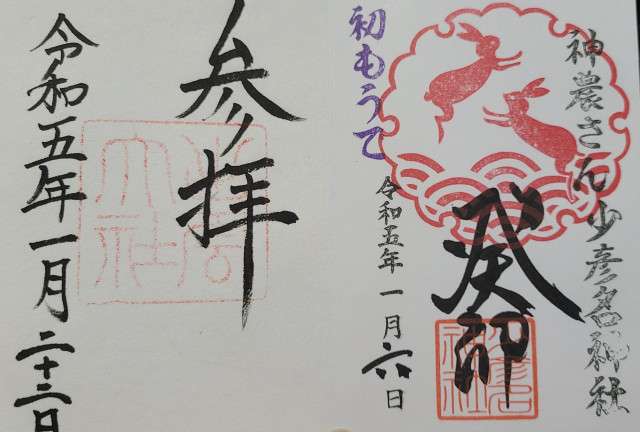 参拝
令和五年一月二十二日
神農さん少彦名神社
癸卯
初もうて
令和五年一月六日